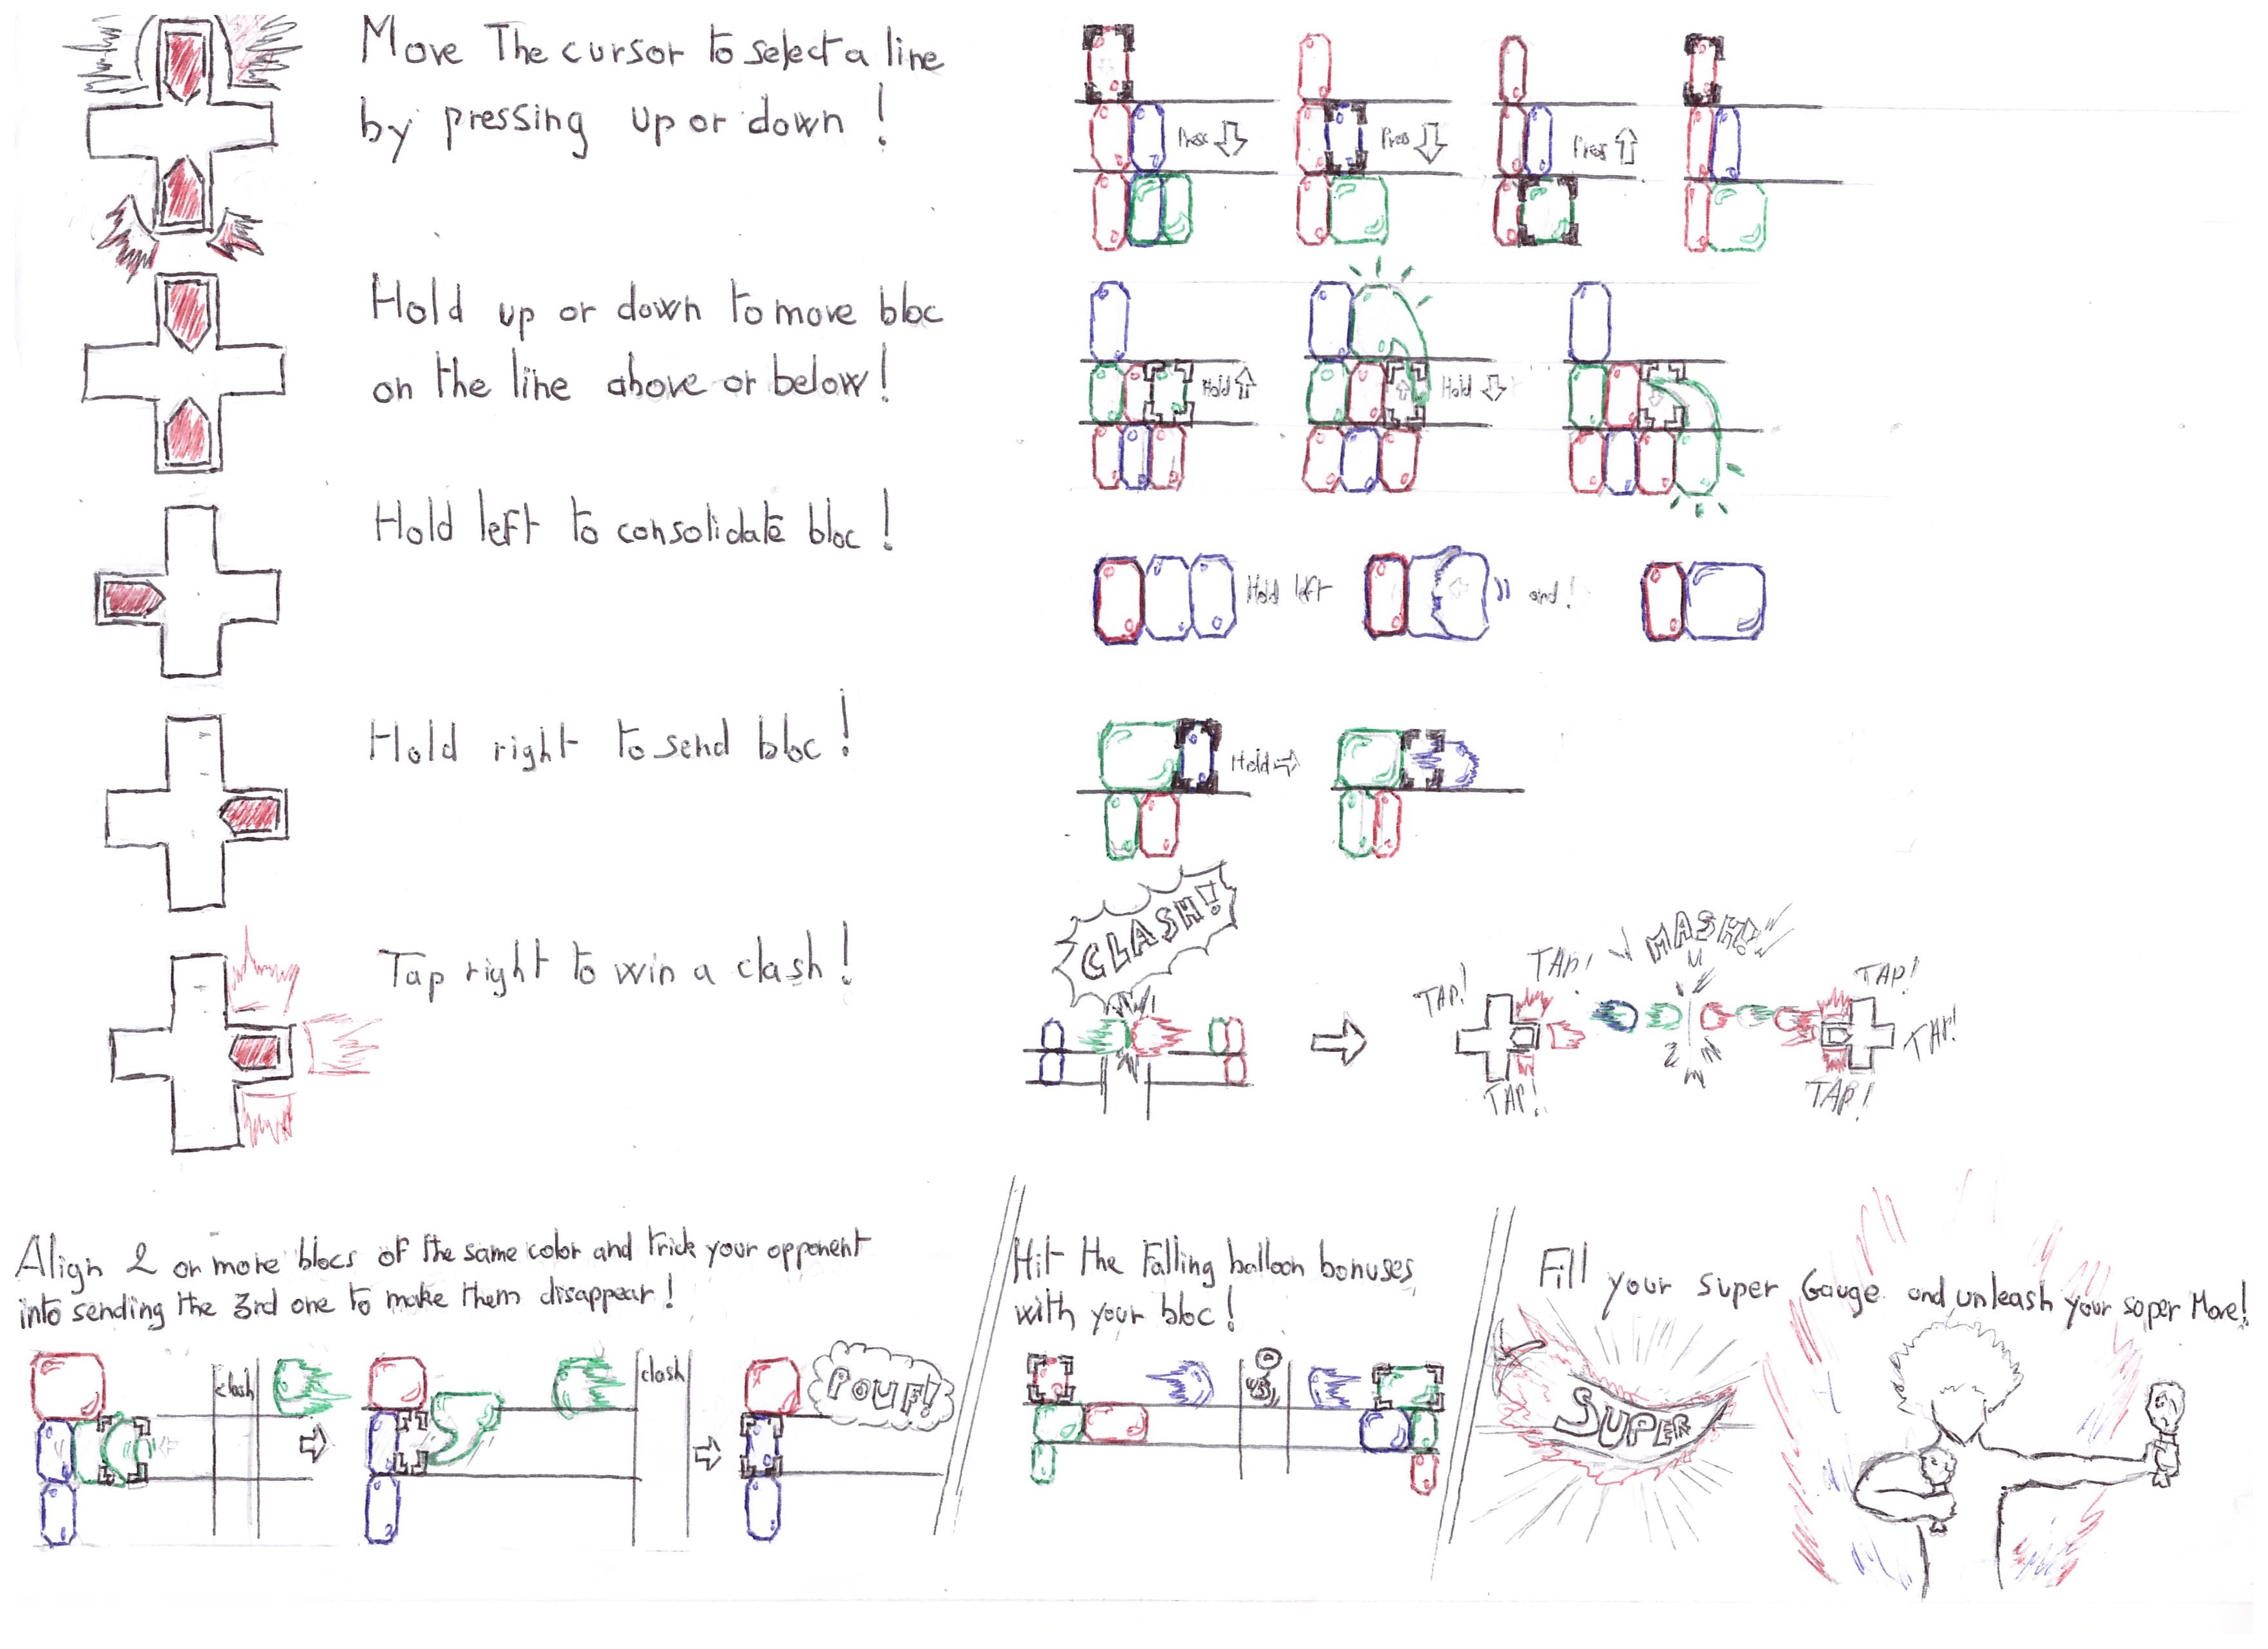 Move The cursor to select a line
by pressing up or down !
Press
Press
Press
Hold up or down to move bloc
on the line above or below!
Hold
Hold
Hold left to consolidate bloc !
Hold left
and !
Hold right to send bloc !
Hold
CLASH!
Tap right to win a clash !
MASH!
TAP!
TAP!
TAP!
TAP!
TAP!
TAP!
Align 2 or more blocs of the same color and trick your opponent
into sending the 3rd one to make them disappear !
clash
clash
POUF!
Hit the Falling balloon bonuses
with your bloc !
Fill your super Gauge and unleash your super Move!
SUPER